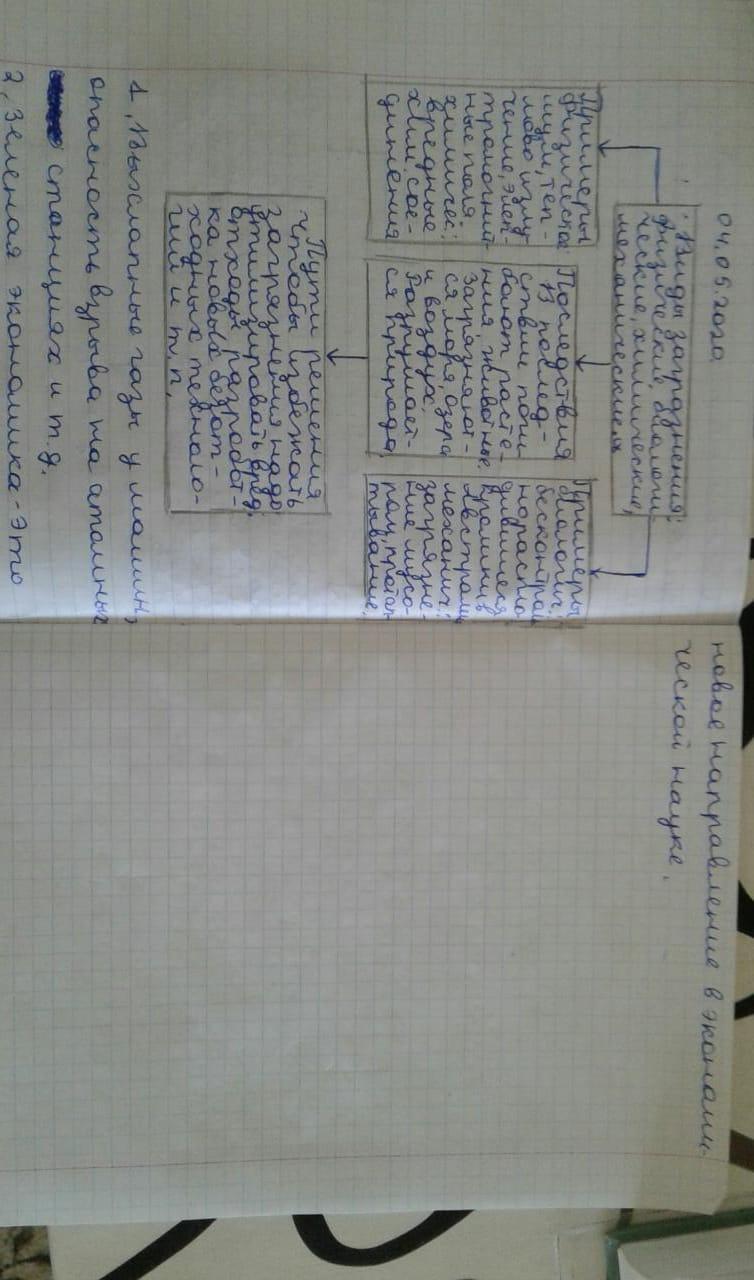 04.05.2020
Виды загрязнения:
физический, биологи-
ческие, химические,
механические.
Примеры
физическое:
шум, теп-
лово излу-
чение, элек-
тромогнит-
ные поля
химичес.:
вредные
хим. сое-
динения
Последствия
В послед-
ствии поги
бают расте-
ния, животные,
загрязняют-
ся моря, озера
и воздух.
Разрушает-
ся природа
Примеры
биологич.:
бесконтрол
норасспло
дившиеся
кролики в
Австралии
механич.:
загрязне-
ние мусо-
ром,
тывание,
Пути решения
чтобы избежать
загрязнения надо
утилизировать вред.
отходы, разработ-
ка новых безот-
ходных техноло-
гий и т, п,
1, Выхлапные газы у машин,
опасность взрыва на атомных
станциях и т.д.
2, Зеленая экономика - это
новое направление в экономи-
ческой науке.